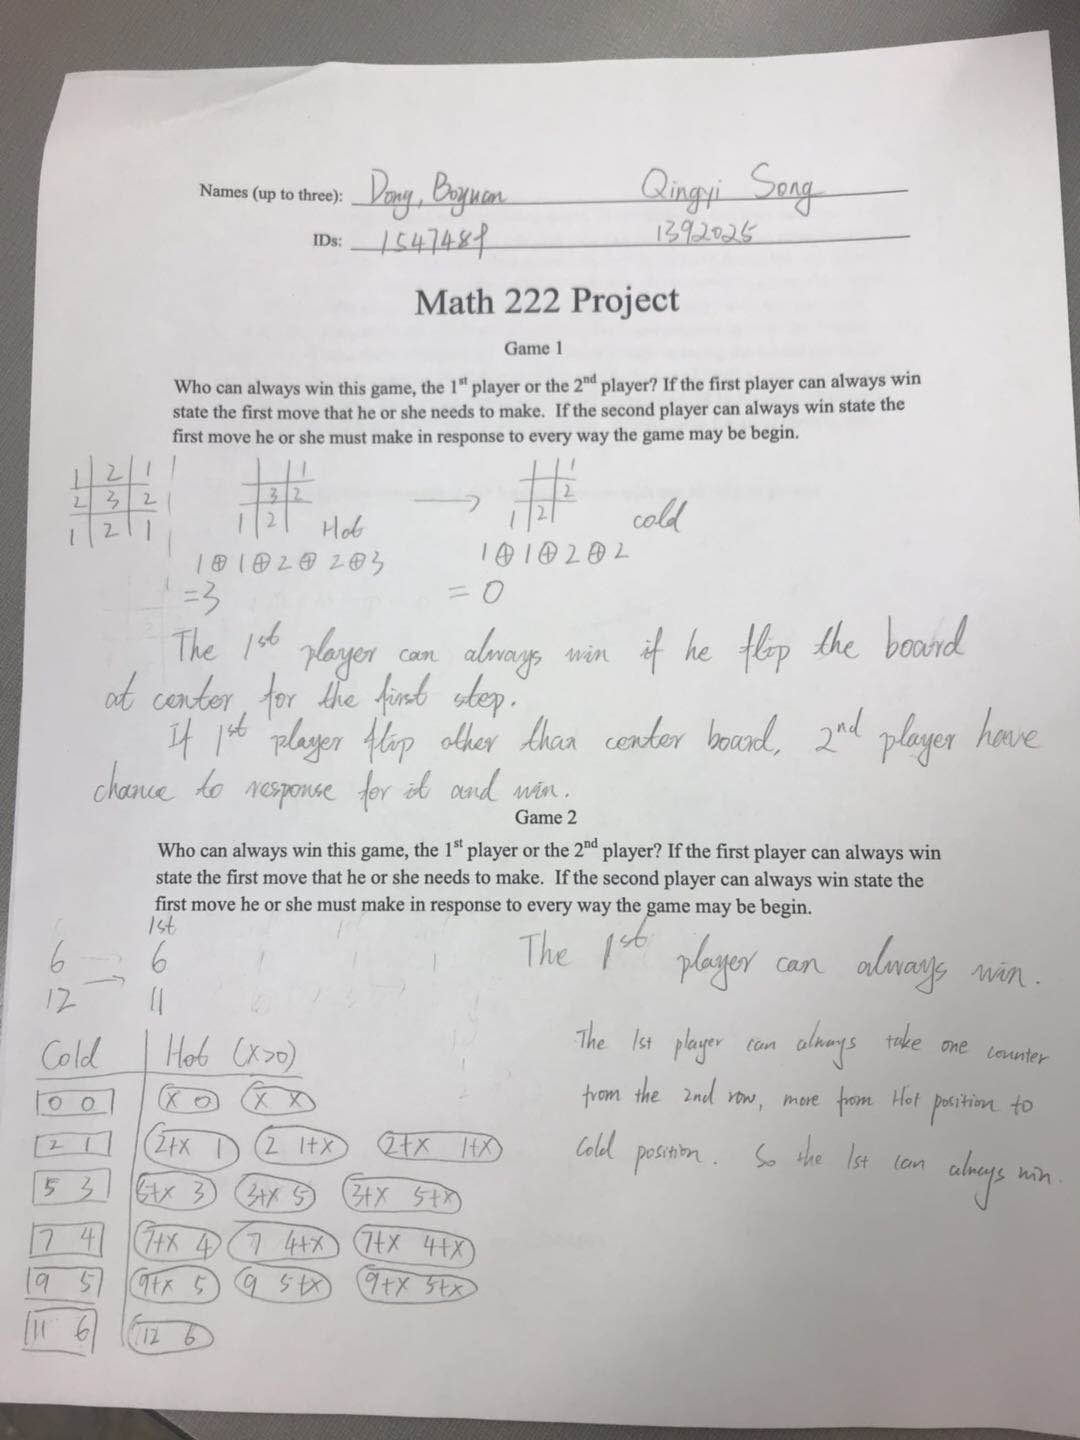 Names (up to three): Dong, Boyuan Qingyi Song
IDs: 1547489 1392025
Math 222 Project
Game 1
Who can always win this game, the 1st player or the 2nd player? If the first player can always win
state the first move that he or she needs to make. If the second player can always win state the
first move he or she must make in response to every way the game may be begin.
1 2 1 1 1
2 3 2 3 2 → 2
1 2 1 1 2 Hot 1 2 cold
1⊕1⊕2⊕2⊕3 1⊕1⊕2⊕2
=3 =0
The 1st player can always win if he flip the board
at center for the first step.
If 1st player flip other than center board, 2nd player have
chance to response for it and win.
Game 2
Who can always win this game, the 1st player or the 2nd player? If the first player can always win
state the first move that he or she needs to make. If the second player can always win state the
first move he or she must make in response to every way the game may be begin.
1st
6 → 6 The 1st player can always win.
12 11
Cold Hot (x>0) The 1st player can always take one counter
0 0 x 0 x x from the 2nd row, more from Hot position to
2 1 2+x 1 2 1+x 2+x 1+x Cold position. So the 1st can always win.
5 3 5+x 3 3+x 5 3+x 5+x
7 4 7+x 4 7 4+x 7+x 4+x
9 5 9+x 5 9 5+x 9+x 5+x
11 6 12 6